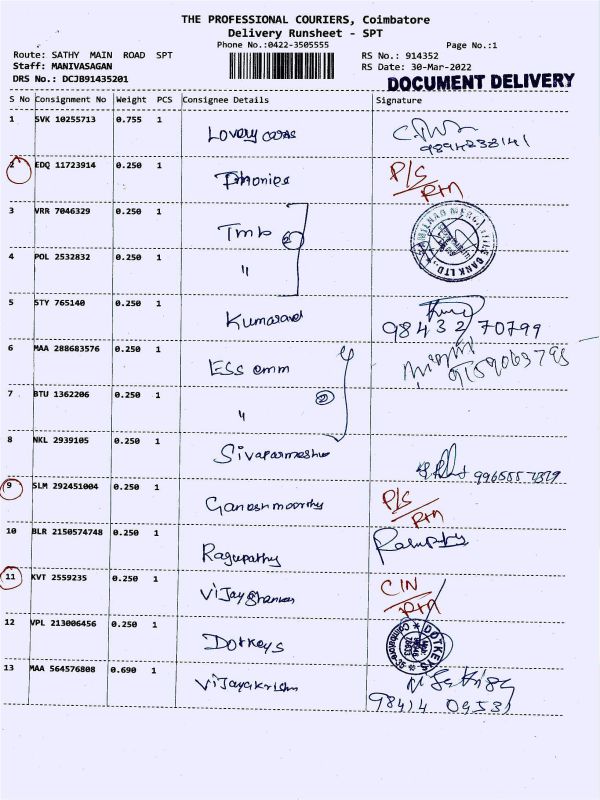 THE PROFESSIONAL COURIERS, Coimbatore
Delivery Runsheet - SPT
Phone No.:0422-3505555
Page No.:1
Route: SATHY MAIN ROAD SPT
RS No.: 914352
Staff: MANIVASAGAN
RS Date: 30-Mar-2022
DRS No.: DCJB91435201
DOCUMENT DELIVERY
S No Consignment No Weight PCS Consignee Details Signature
1 SVK 10255713 0.755 1
2 EDQ 11723914 0.250 1 P/S
Rtn
3 VRR 7046329 0.250 1 Tmb 2
4 POL 2532832 0.250 1 "
5 STY 765140 0.250 1
98432 70799
6 MAA 288683576 0.250 1 ESS emm
7 BTU 1362206 0.250 1 " 2
8 NKL 2939105 0.250 1
9 SLM 292451004 0.250 1 Ganeshmoorthy P/S
Rtn
10 BLR 2150574748 0.250 1 Ragupathy
11 KVT 2559235 0.250 1 CIN
Rtn
12 VPL 213006456 0.250 1 Dotkeys DOTKEYS
13 MAA 564576808 0.690 1 Vijayakrishn